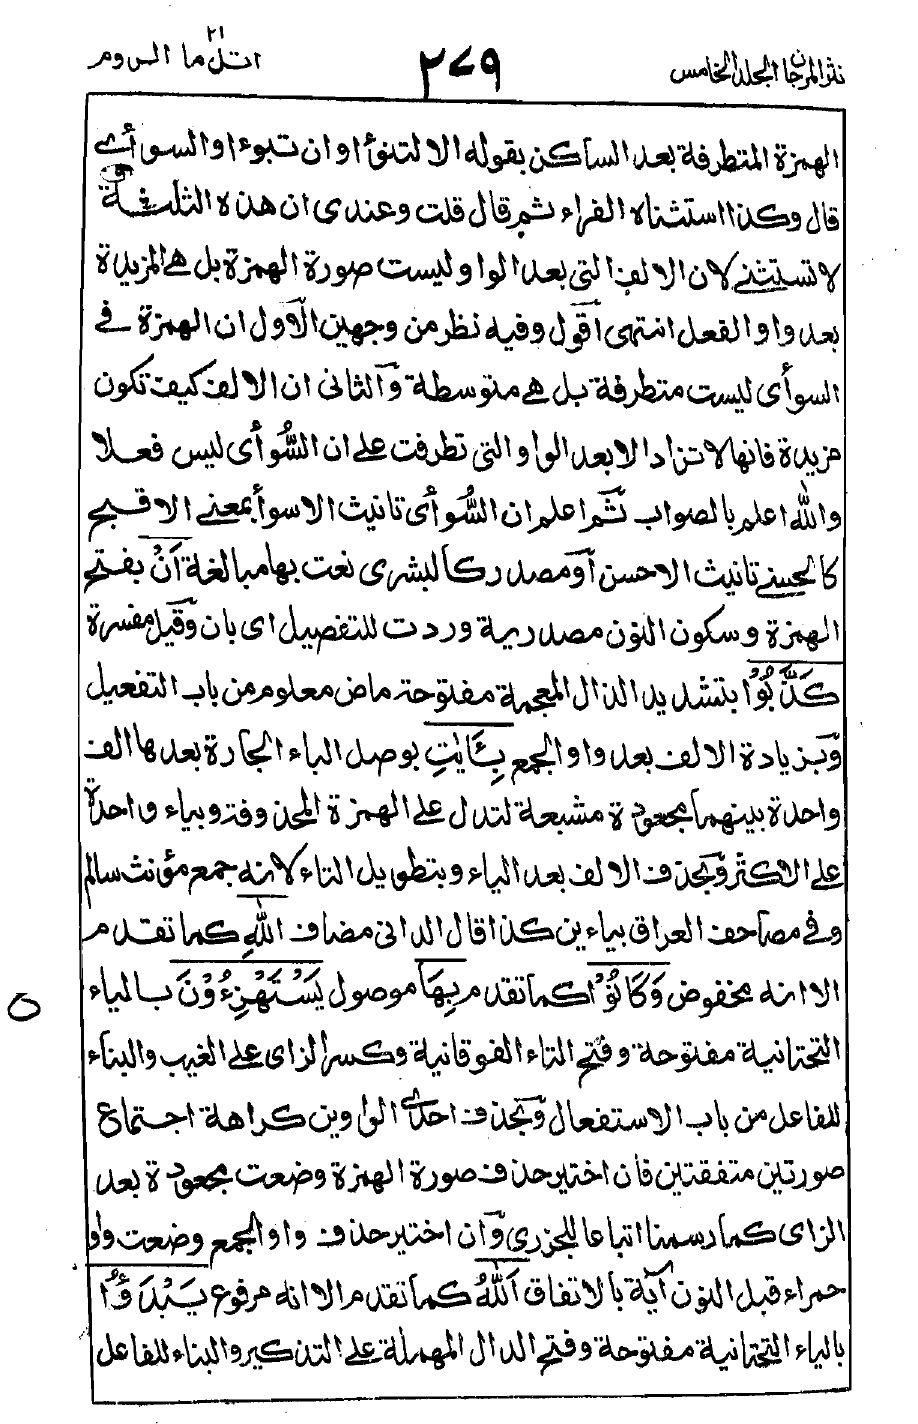 نثر المرجان المجلد الخامس
٢٧٩
اتل ما ٢١ الروم
الهمزة المتطرفة بعد الساكن بقوله الا لتنوأ او ان تبوءا والسوأى
قال وكذا استثناه الفراء ثم قال قلت وعندى ان هذه الثلثة
لا تستثنى لان الالف التى بعد الواو ليست صورة الهمزة بل هى المزيدة
بعد واو الفعل انتهى اقول وفيه نظر من وجهين الاول ان الهمزة فى
السوأى ليست متطرفة بل هى متوسطة والثانى ان الالف كيف تكون
مزيدة فانها لا تزاد الا بعد الواو التى تطرفت على ان السُّوأى ليس فعلا
والله اعلم بالصواب ثم اعلم ان السُّوأى تانيث الاسوأ بمعنى الاقبح
كالحسنى تانيث الاحسن أو مصدر كالبشرى نعت بها مبالغة اَنْ بفتح
الهمزة وسكون النون مصدرية وردت للتفصيل اى بان وقيل مفسرة
كَذَّبُوْا بتشديد الذال المعجمة مفتوحة ماض معلوم من باب التفعيل
وبزيادة الالف بعد واو الجمع بِـَٔايٰتِ بوصل الباء الجارة بعدها الف
واحدة بينهما مجعودة مشبعة لتدل على الهمزة المحذوفة وبياء واحدة
على الاكثر وبحذف الالف بعد الياء وبتطويل التاء لانه جمع مؤنث سالم
وفى مصاحف العراق بياءين كذا قال الدانى مضاف اللهِ كما تقدم
الا انه مخفوض وَكَانُوْا كما تقدم بِهَا موصول يَسْتَهْزِءُوْنَ بالياء
التحتانية مفتوحة وفتح التاء الفوقانية وكسر الزاى على الغيب والبناء
للفاعل من باب الاستفعال وبحذف احدى الواوين كراهة اجتماع
صورتين متفقتين فان اختير حذف صورة الهمزة وضعت مجعودة بعد
الزاى كما رسمنا اتباعا للجزرى وان اختير حذف واو الجمع وضعت واو
حمراء قبل النون آية بالاتفاق اَللهُ كما تقدم الا انه مرفوع يَبْدَؤُا
بالياء التحتانية مفتوحة وفتح الدال المهملة على التذكير والبناء للفاعل